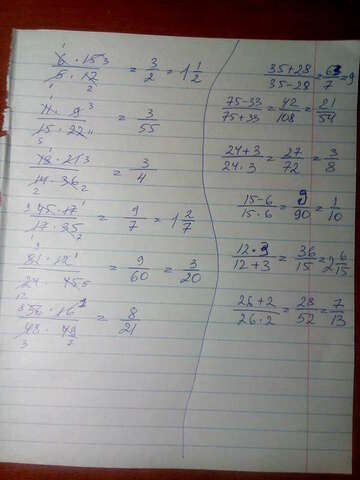 6 · 15 / 5 · 12 = 3/2 = 1 1/2
4 · 9 / 15 · 22 = 3/55
18 · 21 / 14 · 36 = 3/4
45 · 17 / 17 · 35 = 9/7 = 1 2/7
81 · 12 / 24 · 45 = 9/60 = 3/20
56 · 16 / 48 · 49 = 8/21
35+28 / 35-28 = 63/7 = 9
75-33 / 75+33 = 42/108 = 21/54
24+3 / 24·3 = 27/72 = 3/8
15-6 / 15·6 = 9/90 = 1/10
12·3 / 12+3 = 36/15 = 2 6/15
26+2 / 26·2 = 28/52 = 7/13